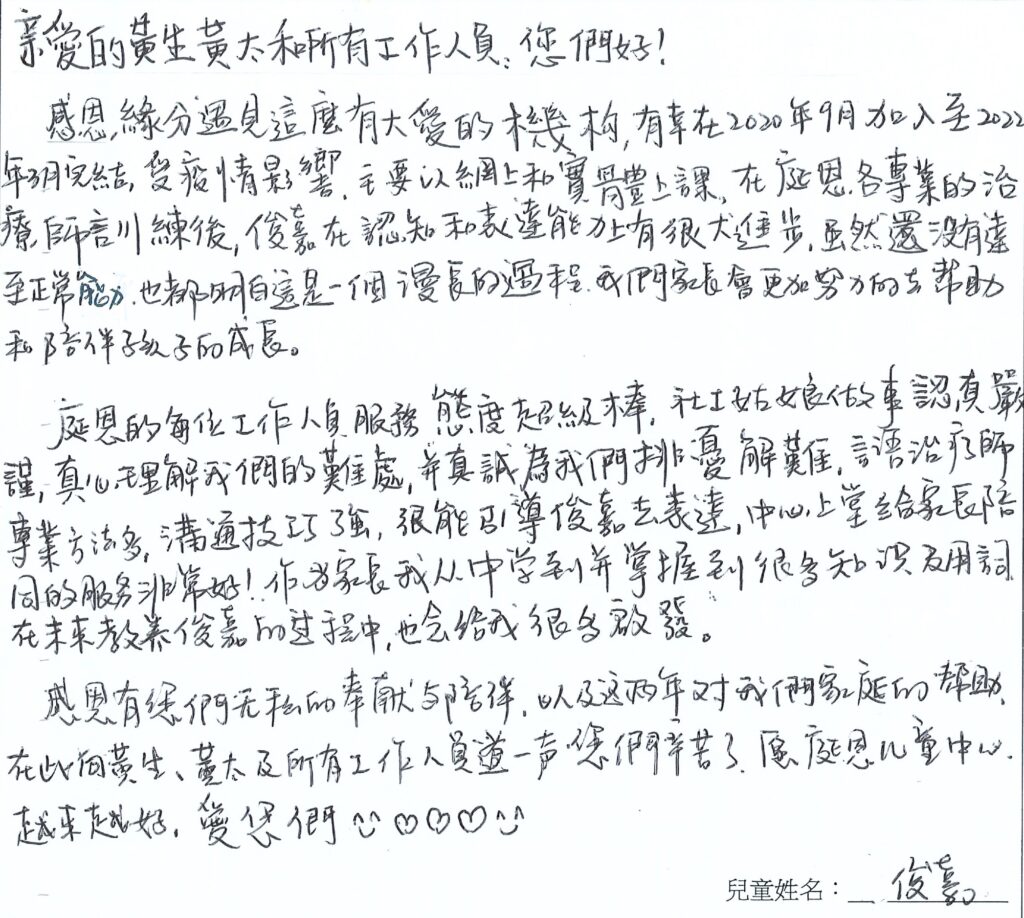 亲愛的黃生黃太和所有工作人員：您們好！
感恩緣分遇見這麼有大愛的機构，有幸在2020年9月加入至2022
年3月完結，受疫情影響，主要以網上和實體上課，在庭恩各專業的治
療師訓練後，俊嘉在認知和表達能力上有很大進步，虽然還沒有達
至正常能力，也都明白這是一個漫長的過程，我們家長會更加努力的去幫助
和陪伴孩子的成長。
庭恩的每位工作人員服務態度超級棒，社工姑娘做事認真嚴
謹，真心理解我們的難處，并真誠為我們排憂解難，語言治疗師
專業方法多，溝通技巧強，很能引導俊嘉去表達，中心上堂給家長陪
同的服务非常好！作为家長我从中学到并掌握到很多知识及用詞
在未來教养俊嘉的过程中，也会给我很多啟發。
感恩有您們无私的奉献与陪伴，以及这两年对我們家庭的帮助，
在此向黃生、黃太及所有工作人員道一声您們辛苦了，愿庭恩儿童中心
越来越好，愛您們
兒童姓名：俊嘉